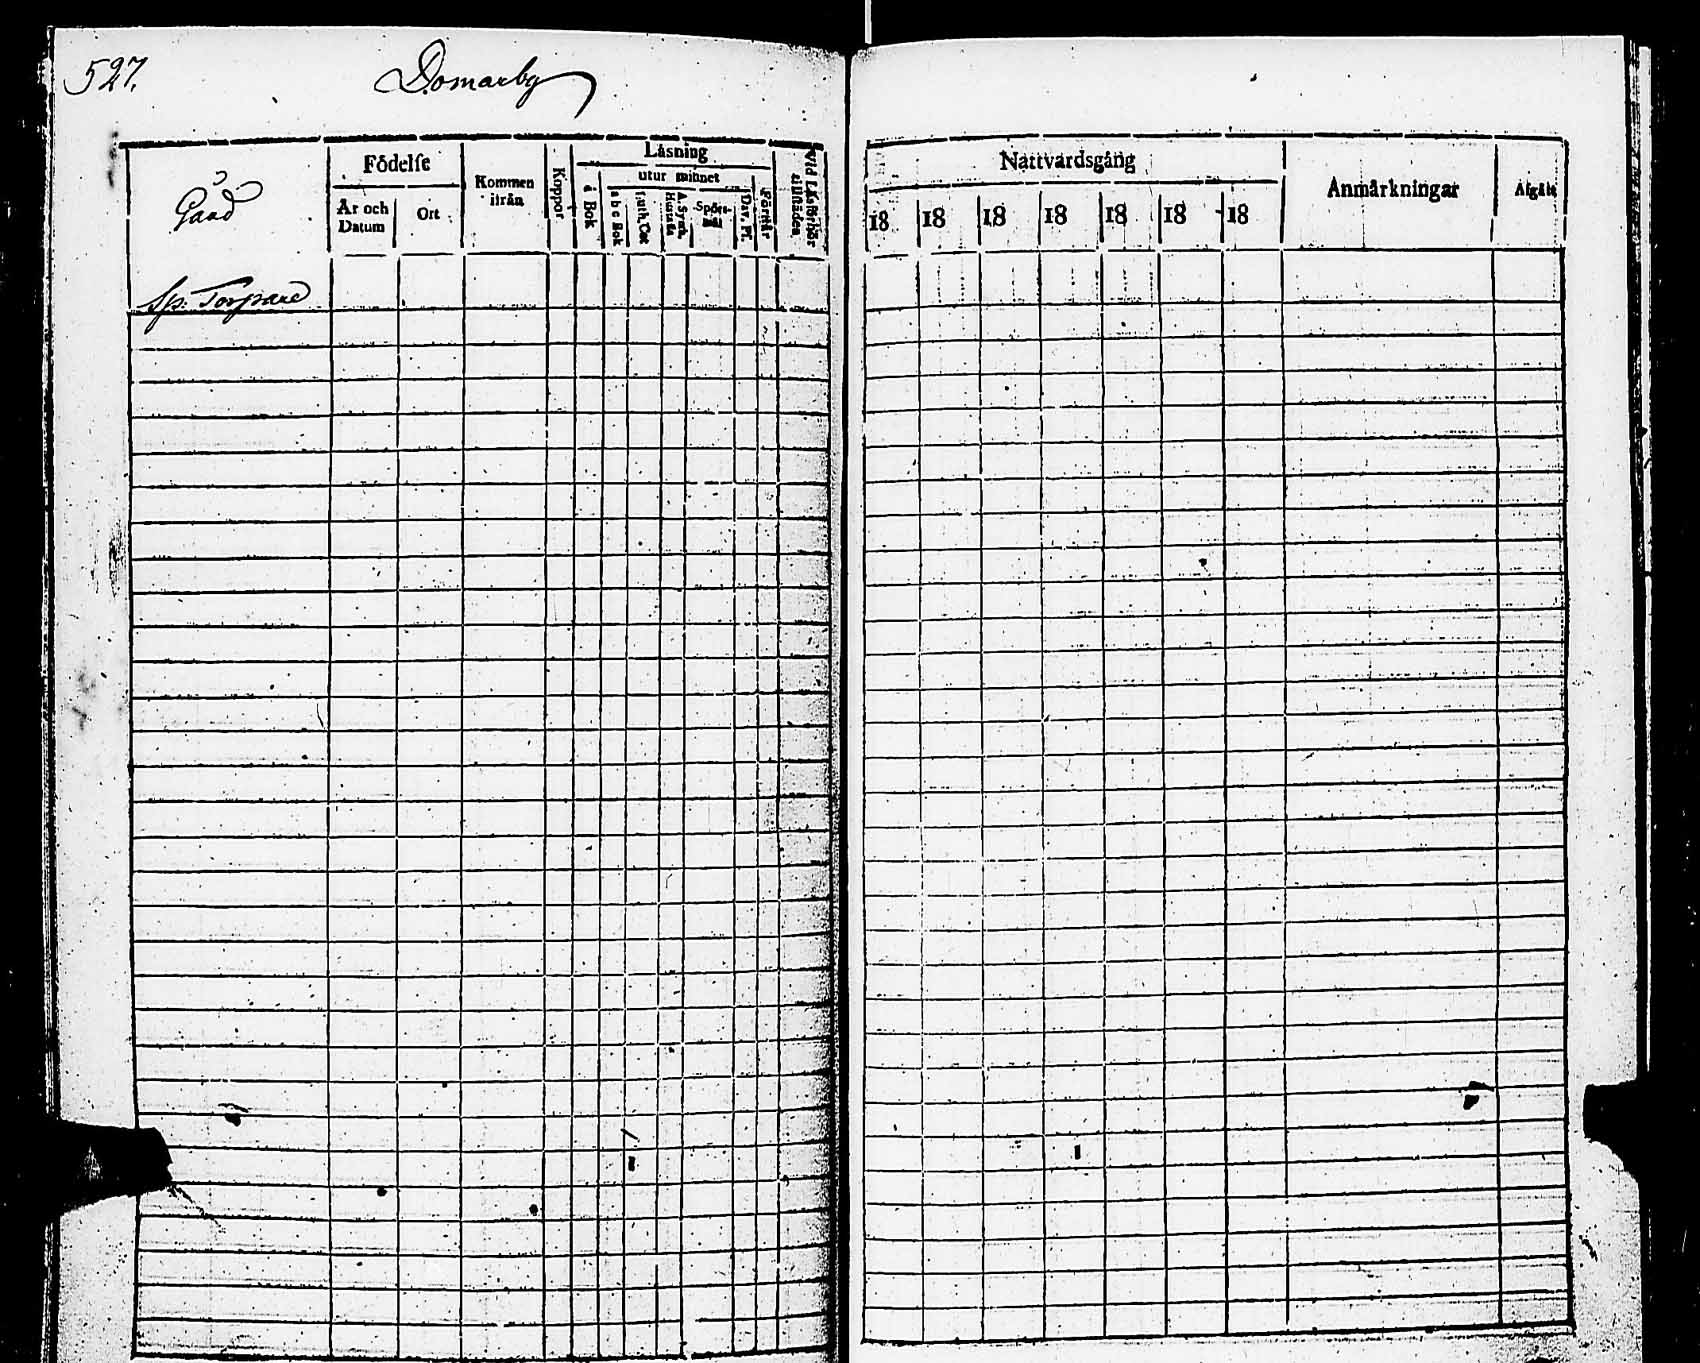 527.
Domarby
Gård
Födelse
År och
Datum
Ort
Kommen
ifrån
Koppor
Läsning
utur minnet
i Bok
a b c Bok
Luth. Cat
A. Symb.
Hustafla
Spörs-
mål
Dav. Ps.
Förstår
Vid Läsförhör
tillstädes
Nattvardsgång
18
18
18
18
18
18
18
Anmärkningar
Afgått
Sp: Torpare